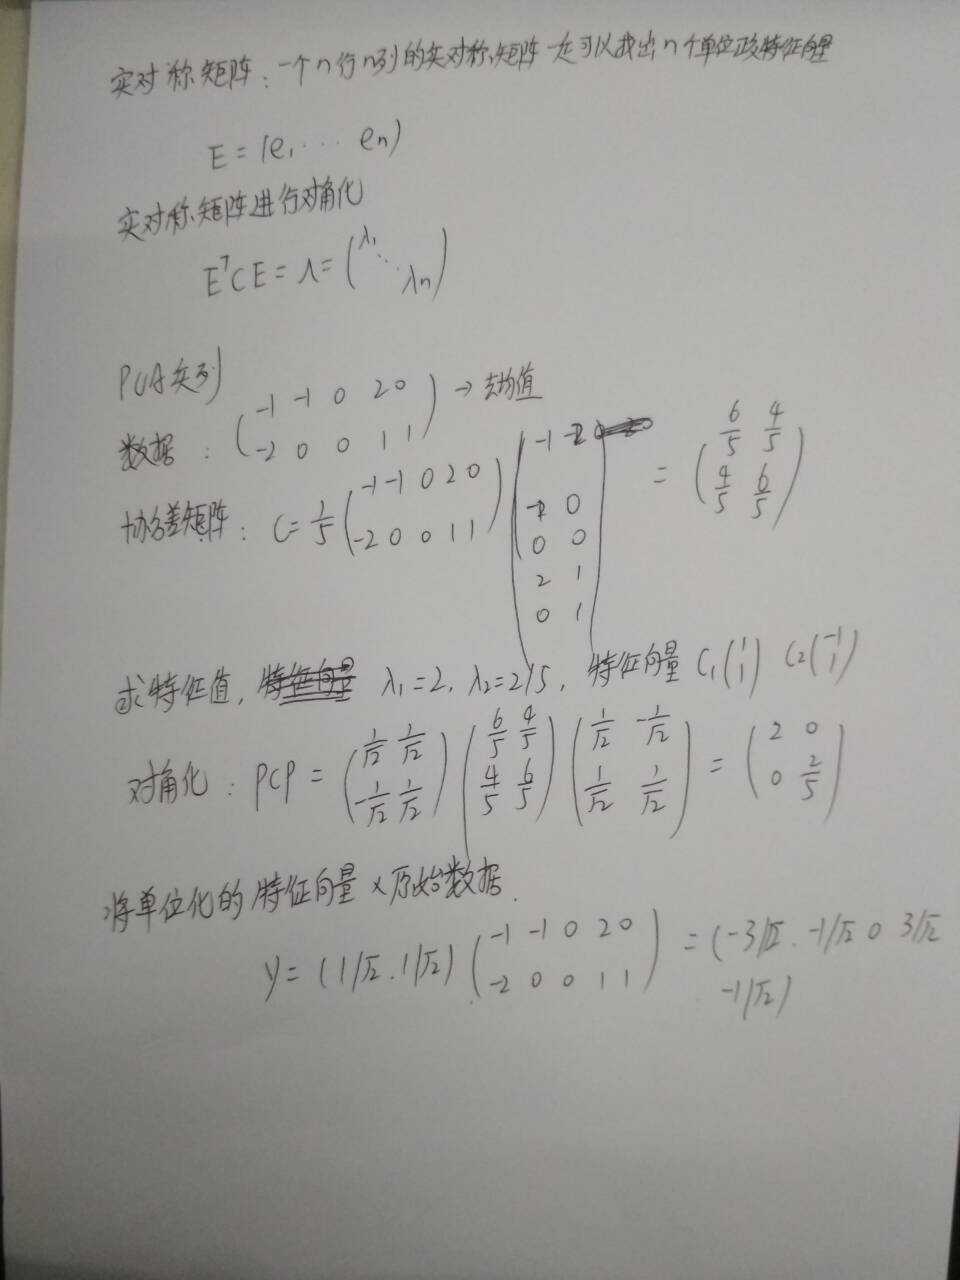 实对称矩阵：一个n行n列的实对称矩阵一定可以找出n个单位正交特征向量
E = (e₁ ⋯ eₙ)
实对称矩阵进行对角化
EᵀCE = Λ = (λ₁ ⋱ λₙ)
PCA实列
数据： (-1 -1 0 2 0 / -2 0 0 1 1) → 去均值
协方差矩阵： C = 1/5 (-1 -1 0 2 0 / -2 0 0 1 1) (-1 -2 / -1 0 / 0 0 / 2 1 / 0 1) = (6/5 4/5 / 4/5 6/5)
求特征值， λ₁=2, λ₂=2/5, 特征向量 C₁(1 / 1) C₂(-1 / 1)
对角化： PCP = (1/√2 1/√2 / -1/√2 1/√2) (6/5 4/5 / 4/5 6/5) (1/√2 -1/√2 / 1/√2 1/√2) = (2 0 / 0 2/5)
将单位化的特征向量 × 原始数据.
Y = (1/√2 . 1/√2) (-1 -1 0 2 0 / -2 0 0 1 1) = (-3/√2 . -1/√2 0 3/√2
-1/√2)